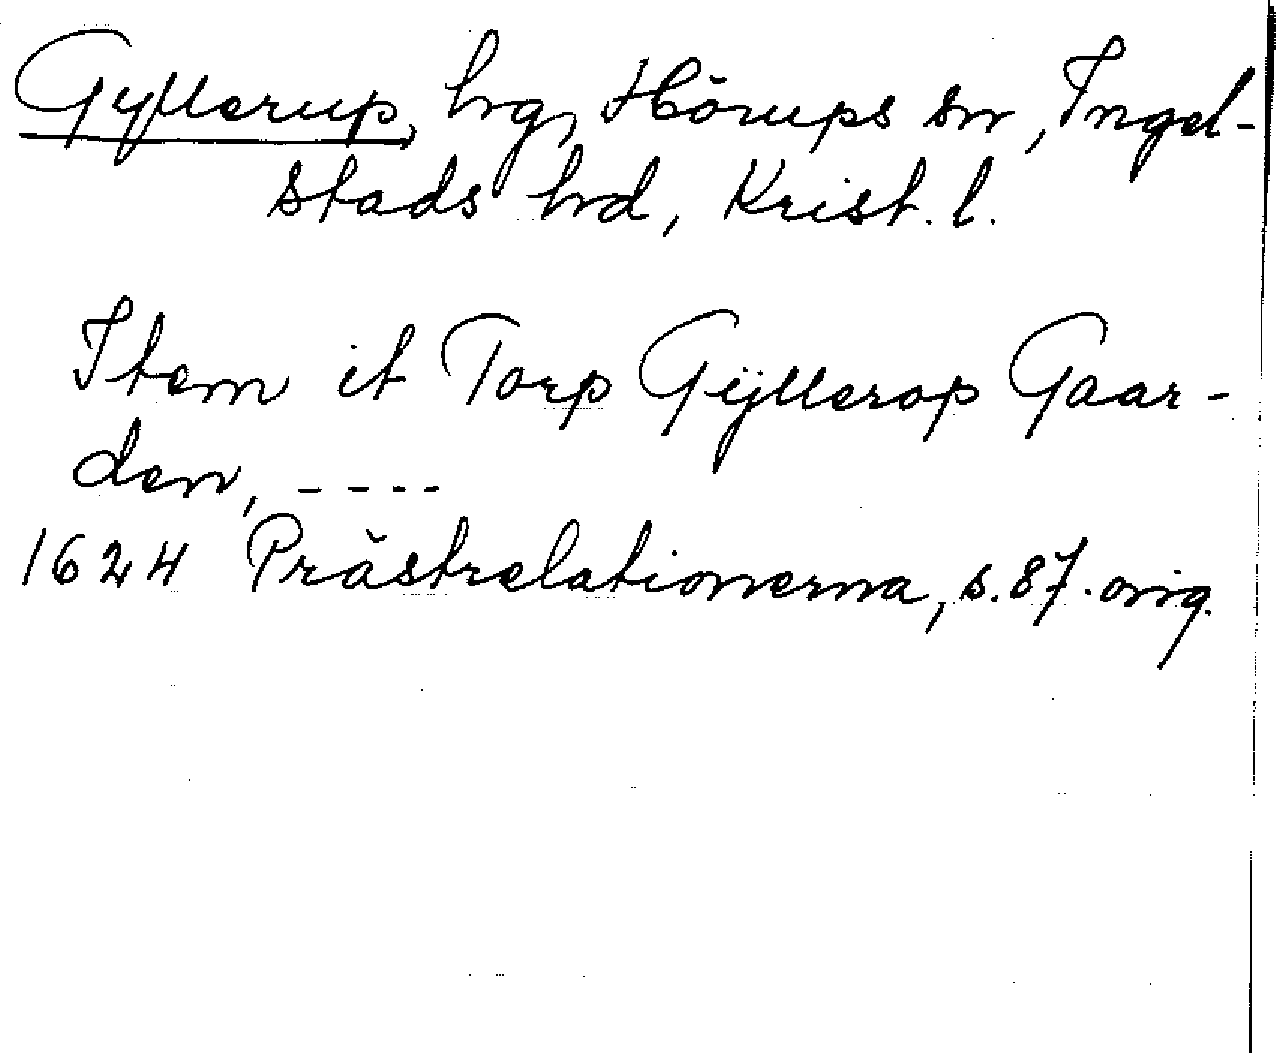 Gyllerup, hrg, Hörups sn, Ingel-
stads hrd, Krist. l.
Item it Torp Gÿllerop Gaar-
den, ----
1624 Prästrelationerna, s. 87. orig.